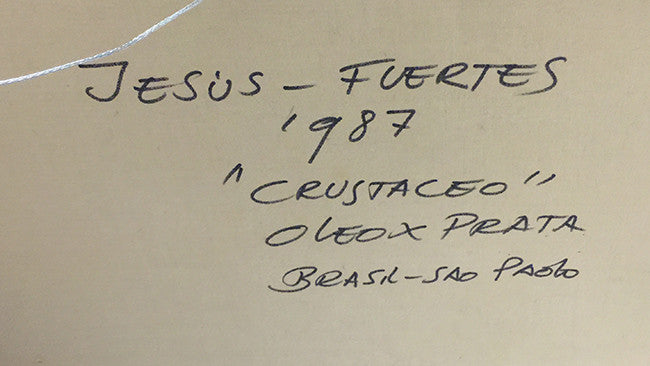 JESÚS - FUERTES
1987
"CRUSTACEO"
OLEOX PRATA
BRASIL-SAO PAOLO